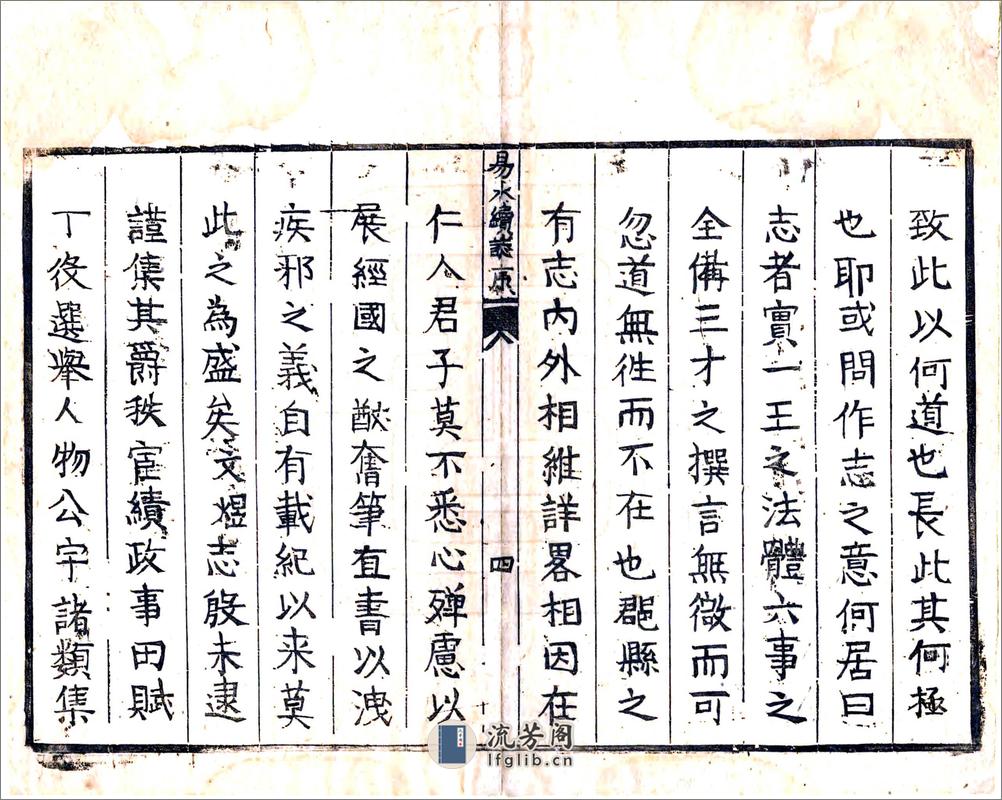 致此以何道也長此其何極
也耶或問作志之意何居曰
志者實一王之法體六事之
全備三才之撰言無徵而可
忽道無徃而不在也郡縣之
有志內外相維詳畧相因在
易水續誌
四
仁人君子莫不悉心殫慮以
展經國之猷奮筆直書以洩
疾邪之義自有載紀以来莫
此之為盛矣文煜志殷未逮
謹集其爵秩宦績政事田賦
丁役選舉人物公宇諸類集
流芳阁
lfglib.cn